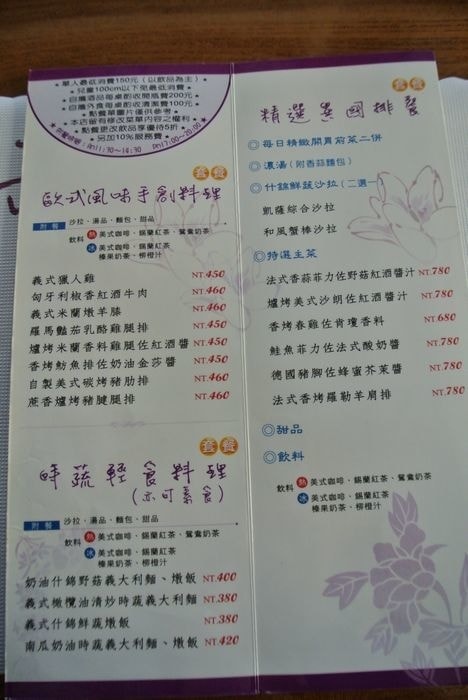 單人最低消費150元（以飲品為主）
兒童100cm以下免最低消費
自攜酒品每桌酌收開瓶費200元
自攜外食每桌酌收清潔費100元
點餐單圖片僅供參考
本店留有修改菜單內容之權利
點餐更改飲品享優待5折
另加10%服務費
供餐時間 Am11:30~14:30 Pm17:00~20:00
套餐
歐式風味手創料理
附餐 沙拉、湯品、麵包、甜品
飲料 熱 美式咖啡、錫蘭紅茶、鴛鴦奶茶
冰 美式咖啡、錫蘭紅茶
榛果奶茶、柳橙汁
義式獵人雞 NT.450
匈牙利椒香紅酒牛肉 NT.460
義式米蘭燉羊膝 NT.460
羅馬豔茄乳酪雞腿排 NT.450
爐烤米蘭香料雞腿佐紅酒醬 NT.450
香烤魴魚排佐奶油金莎醬 NT.450
自製美式碳烤豬肋排 NT.460
蔗香爐烤豬腱腿排 NT.460
套餐
時蔬輕食料理
(亦可素食)
附餐 沙拉、湯品、麵包、甜品
飲料 熱 美式咖啡、錫蘭紅茶、鴛鴦奶茶
冰 美式咖啡、錫蘭紅茶
榛果奶茶、柳橙汁
奶油什錦野菇義大利麵、燉飯 NT.400
義式橄欖油清炒時蔬義大利麵 NT.380
義式什錦鮮蔬燉飯 NT.380
南瓜奶油時蔬義大利麵、燉飯 NT.420
套餐
精選異國排餐
◎每日精緻開胃前菜二併
◎濃湯(附香蒜麵包)
◎什錦鮮蔬沙拉(二選一)
凱薩綜合沙拉
和風蟹棒沙拉
◎特選主菜
法式香蒜菲力佐野菇紅酒醬汁 NT.780
爐烤美式沙朗佐紅酒醬汁 NT.780
香烤春雞佐肯瓊香料 NT.680
鮭魚菲力佐法式酸奶醬 NT.780
德國豬腳佐蜂蜜芥茉醬 NT.780
法式香烤羅勒羊肩排 NT.780
◎甜品
◎飲料
飲料 熱 美式咖啡、錫蘭紅茶、鴛鴦奶茶
冰 美式咖啡、錫蘭紅茶
榛果奶茶、柳橙汁